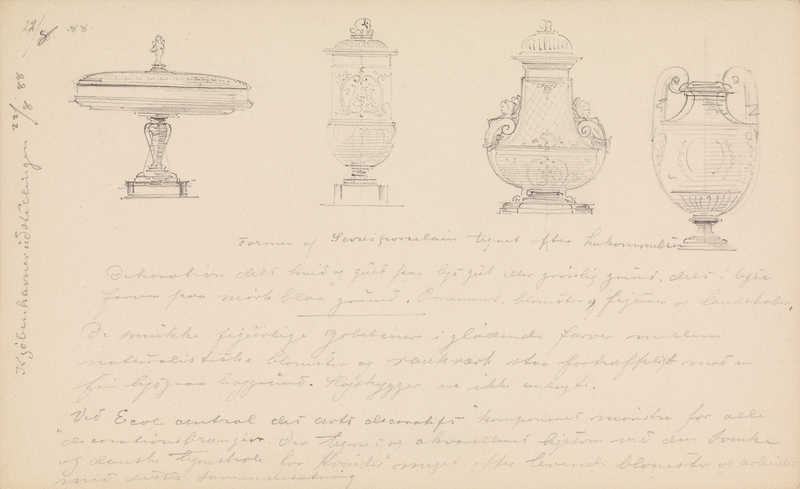 22/8 88
Kjøbenhavnerudstillingen 22/8 88
Former af Sevresporcelain tegnet efter hukommelsen
Dekoration dels hvid og guld paa lys gul eller grønlig grund, dels i lyse
farver paa mørk blaa grund. Ornament, blomster, figurer og landskaber.
De smukke figurlige gobeliner i glødende farver mellem
naturalistiske blomster og rankværk staa fortræffeligt mod en
fin lysgraa baggrund. Slagskygger er ikke anlagt.
Ved "Ecole central des arts decoratifs" komponeres mønstre for alle
decorationsbrancher. Der tegnes og akvarelleres ligesom ved den Svenske
og danske tegneskole for Kvinder meget efter levende blomster og arbeides
med disse